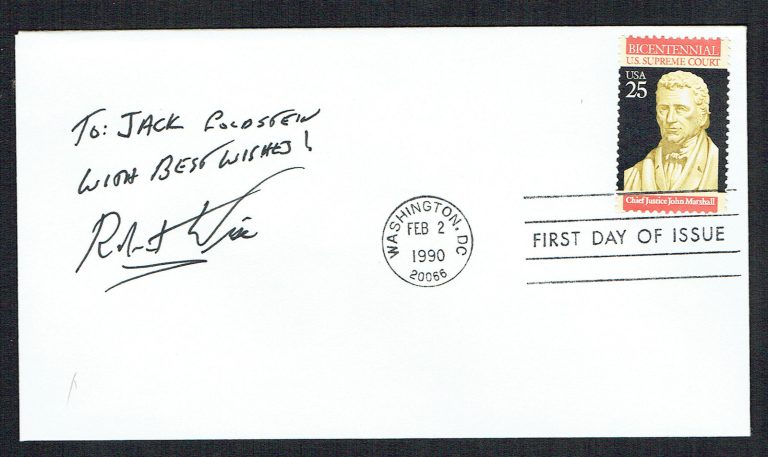 TO: JACK GOLDSTEIN
WITH BEST WISHES!
Robert Wise
BICENTENNIAL
U.S. SUPREME COURT
USA
25
Chief Justice John Marshall
WASHINGTON, DC
FEB 2
1990
20066
FIRST DAY OF ISSUE